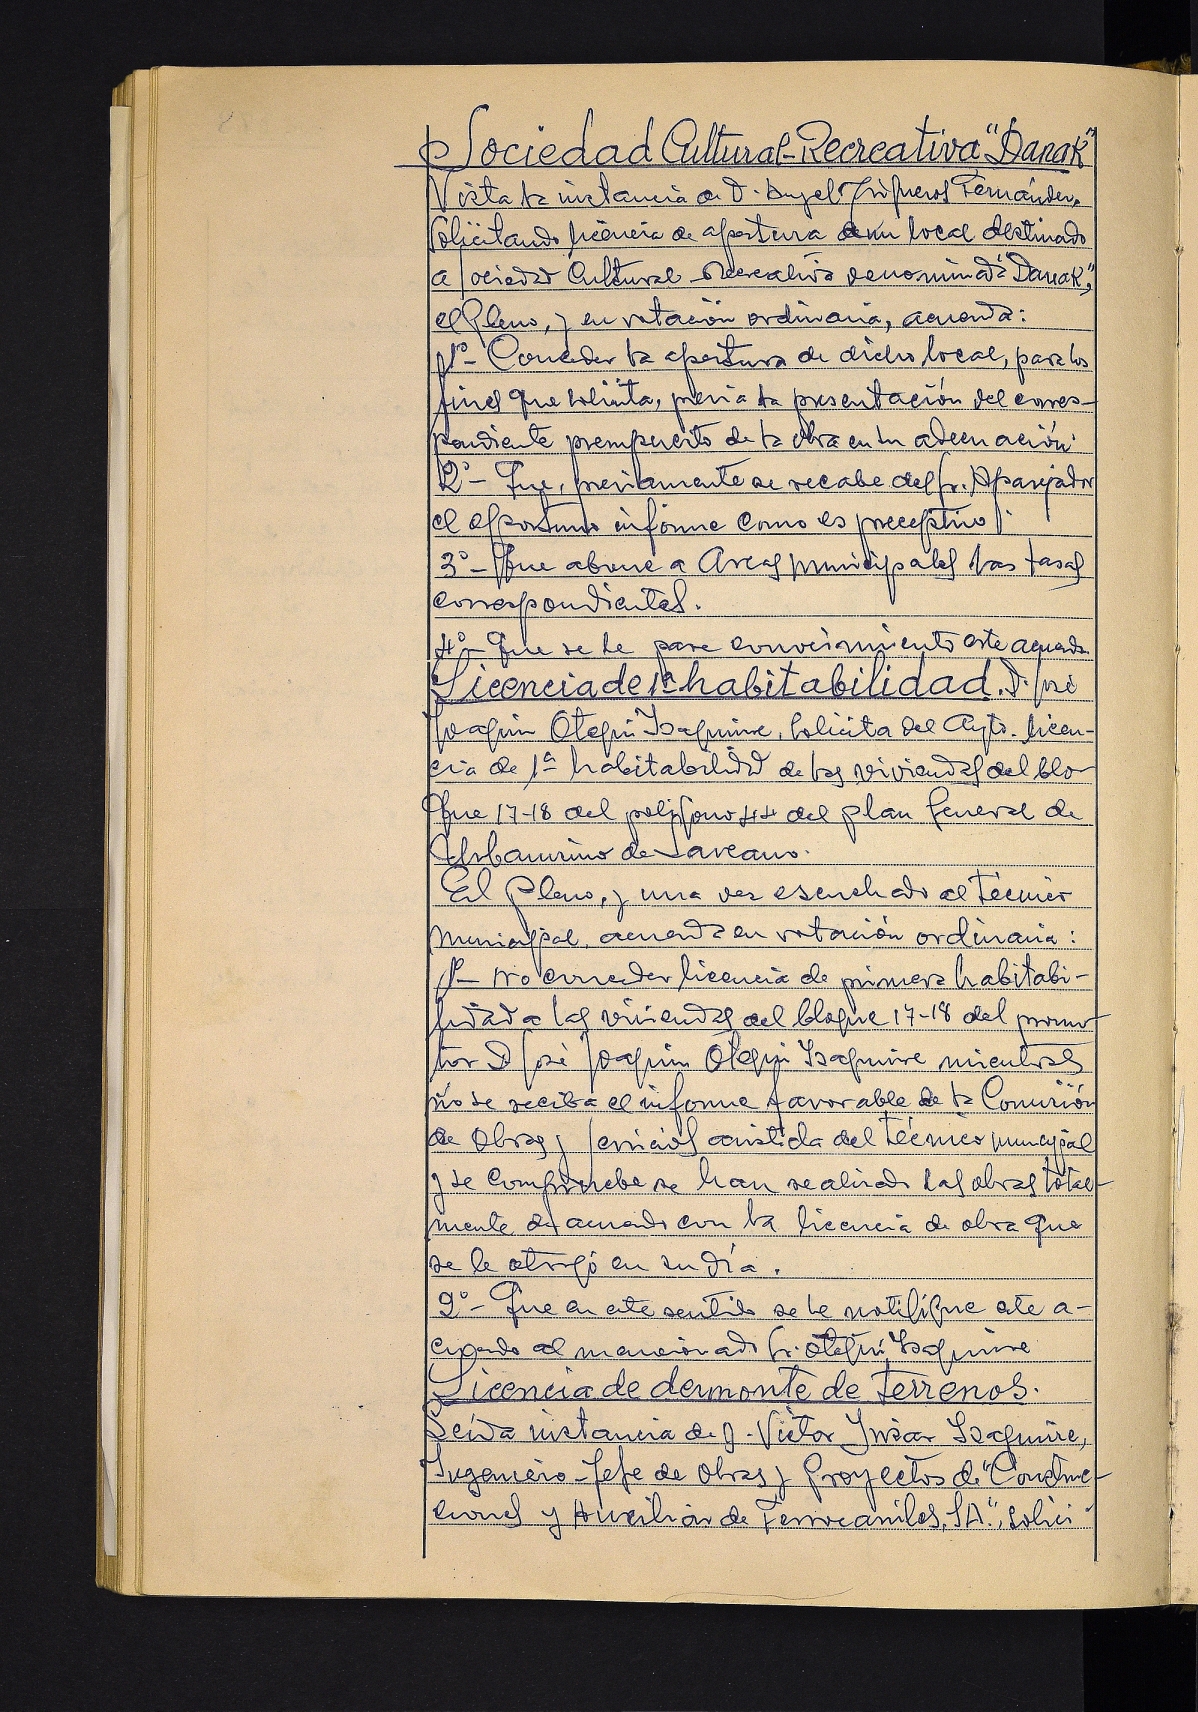 Sociedad Cultural-Recreativa "Danak"
Vista la instancia de D. Angel Trigueros Fernández,
solicitando licencia de apertura de un local destinado
a Sociedad Cultural Recreativa denominada "Danak",
el Pleno, y en votación ordinaria, acuerda:
1º- Conceder la apertura de dicho local, para los
fines que solicita, previa la presentación del corres-
pondiente presupuesto de la obra en su adecuación.
2º- Que, previamente se recabe del Sr. Aparejador
el oportuno informe como es preceptivo.
3º- Que abone a Arcas municipales las tasas
correspondientes.
4º- Que se le pase conocimiento este acuerdo
Licencia de 1ª habitabilidad. D. José
Joaquin Otegui Izaguirre, solicita del Ayto. licen-
cia de 1ª habitabilidad de las viviendas del blo-
que 17-18 del polígono 44 del plan General de
Urbanismo de Lazcano.
El Pleno, y una vez escuchado al técnico
municipal, acuerda en votación ordinaria:
1º- No conceder licencia de primera habitabi-
lidad a las viviendas del bloque 17-18 del promo-
tor D José Joaquin Otegui Izaguirre mientras
no se reciba el informe favorable de la Comisión
de Obras y Servicios asistida del técnico municipal
y se compruebe se han realizado las obras total-
mente de acuerdo con la licencia de obra que
se le otorgó en su día.
2º- Que en este sentido se le notifique este a-
cuerdo al mencionado Sr. Otegui Izaguirre
Licencia de desmonte de terrenos.
Leída instancia de D. Victor Insar Izaguirre,
Ingeniero-Jefe de Obras y Proyectos de "Construc-
ciones y Auxiliar de Ferrocarriles, S.A.", solici-